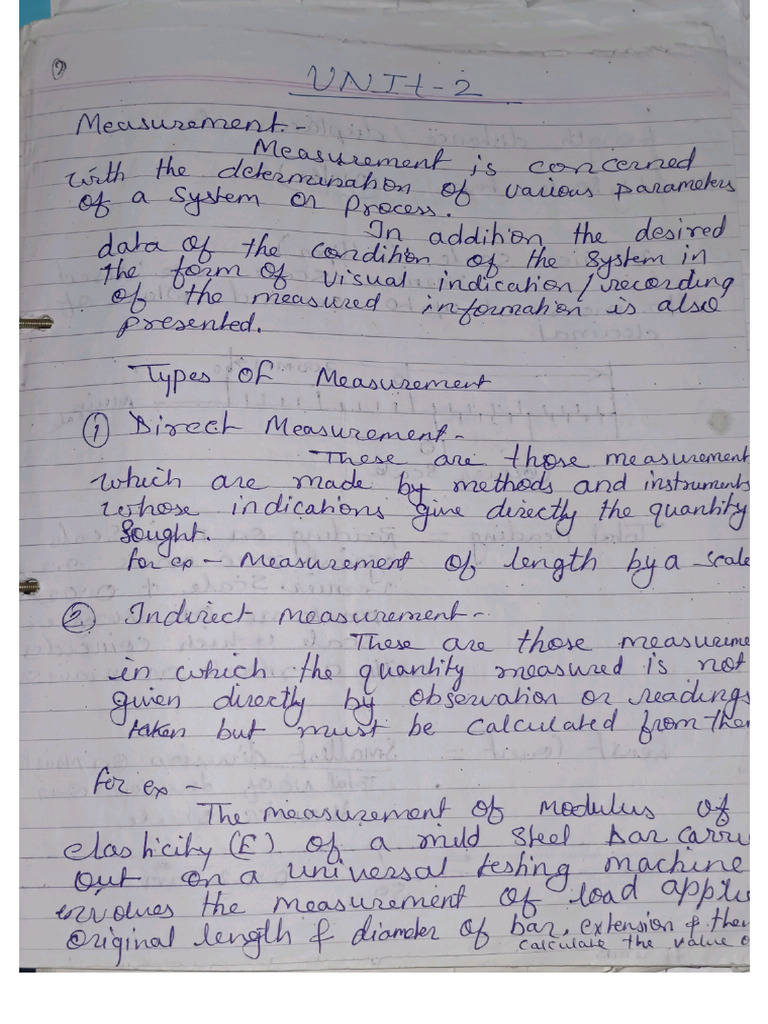 2
UNIt-2
Measurement.-
Measurement is concerned
with the determination of various parameters
of a system or process.
In addition the desired
data of the condition of the system in
the form of visual indication/recording
of the measured information is also
presented.
Types of Measurement
① Direct Measurement.-
These are those measurement
which are made by methods and instruments
whose indications give directly the quantity
sought.
for ex - Measurement of length by a scale
② Indirect measurement.-
These are those measureme
in which the quantity measured is not
given directly by observation or readings
taken but must be calculated from them
for ex -
The measurement of modulus of
elasticity (E) of a mild steel bar carri
out on a universal testing machine
involves the measurement of load applie
original length & diameter of bar, extension & then
calculate the value o